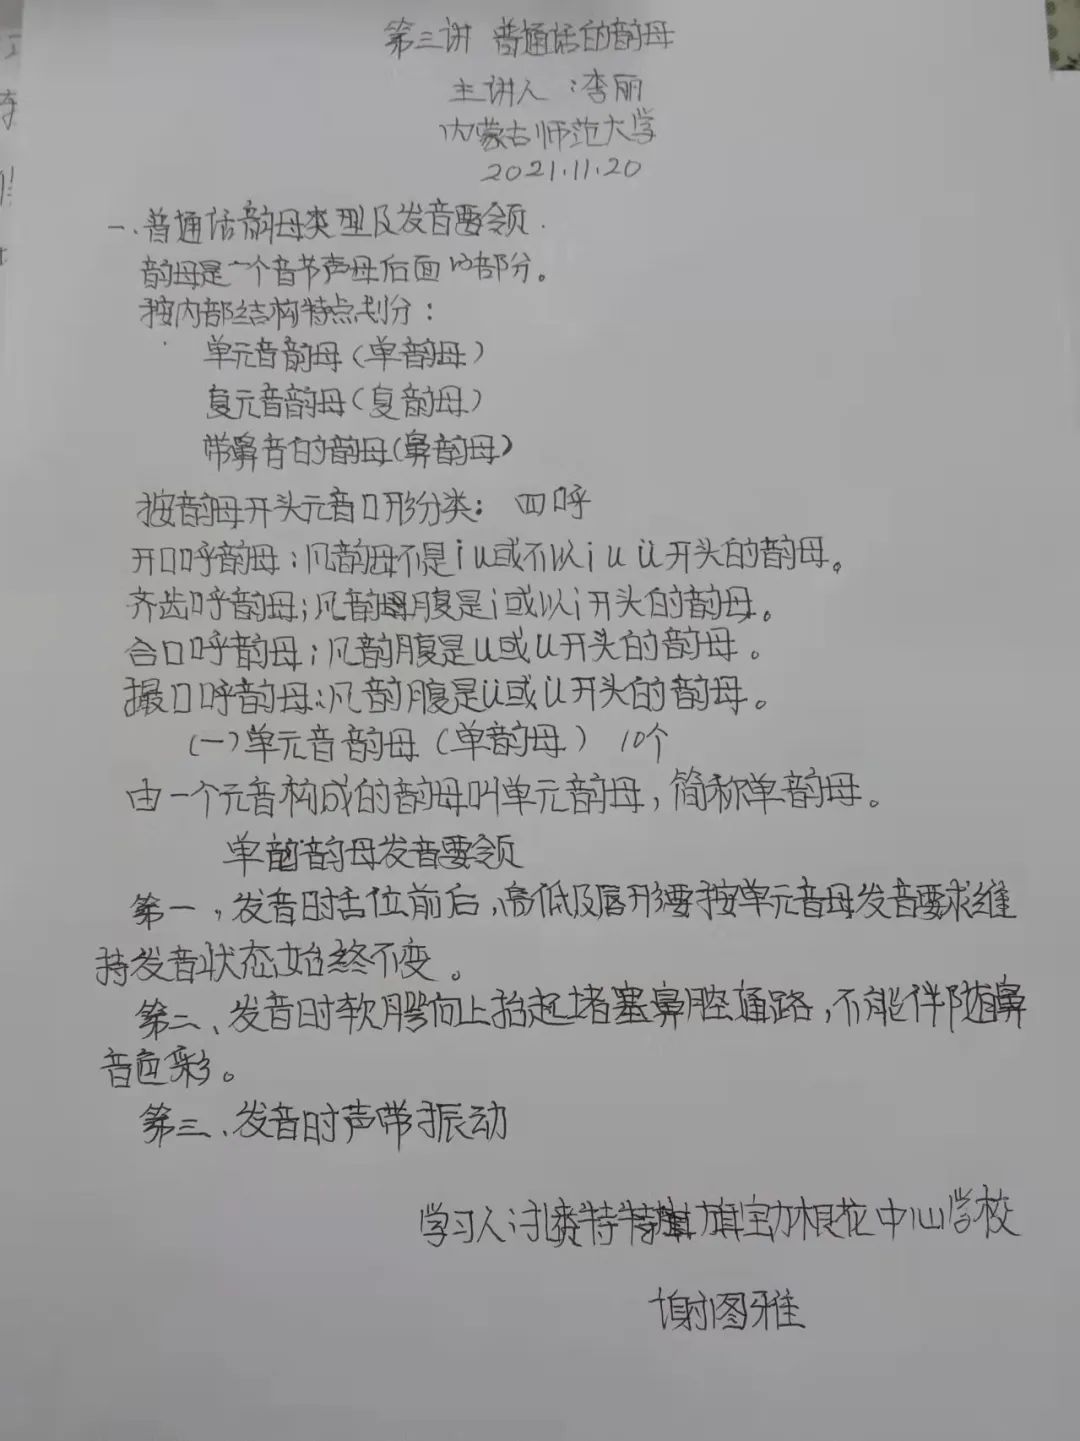 第三讲 普通话的韵母
主讲人：李丽
内蒙古师范大学
2021.11.20
一、普通话韵母类型及发音要领.
韵母是一个音节声母后面的部分。
按内部结构特点划分：
单元音韵母(单韵母)
复元音韵母(复韵母)
带鼻音的韵母(鼻韵母)
按韵母开头元音口形分类： 四呼
开口呼韵母：凡韵母不是i u或不以i u ü开头的韵母。
齐齿呼韵母；凡韵腹是i或以i开头的韵母。
合口呼韵母；凡韵腹是u或u开头的韵母。
撮口呼韵母：凡韵腹是ü或ü开头的韵母。
(一)单元音韵母(单韵母) 10个
由一个元音构成的韵母叫单元韵母，简称单韵母。
单韵韵母发音要领
第一，发音时舌位前后，高低及唇形要按单元音母发音要求维
持发音状态始终不变。
第二、发音时软腭向上抬起堵塞鼻腔通路，不能伴随鼻
音色彩。
第三、发音时声带振动
学习人：扎赉特旗宝力根花中心学校
谢图雅